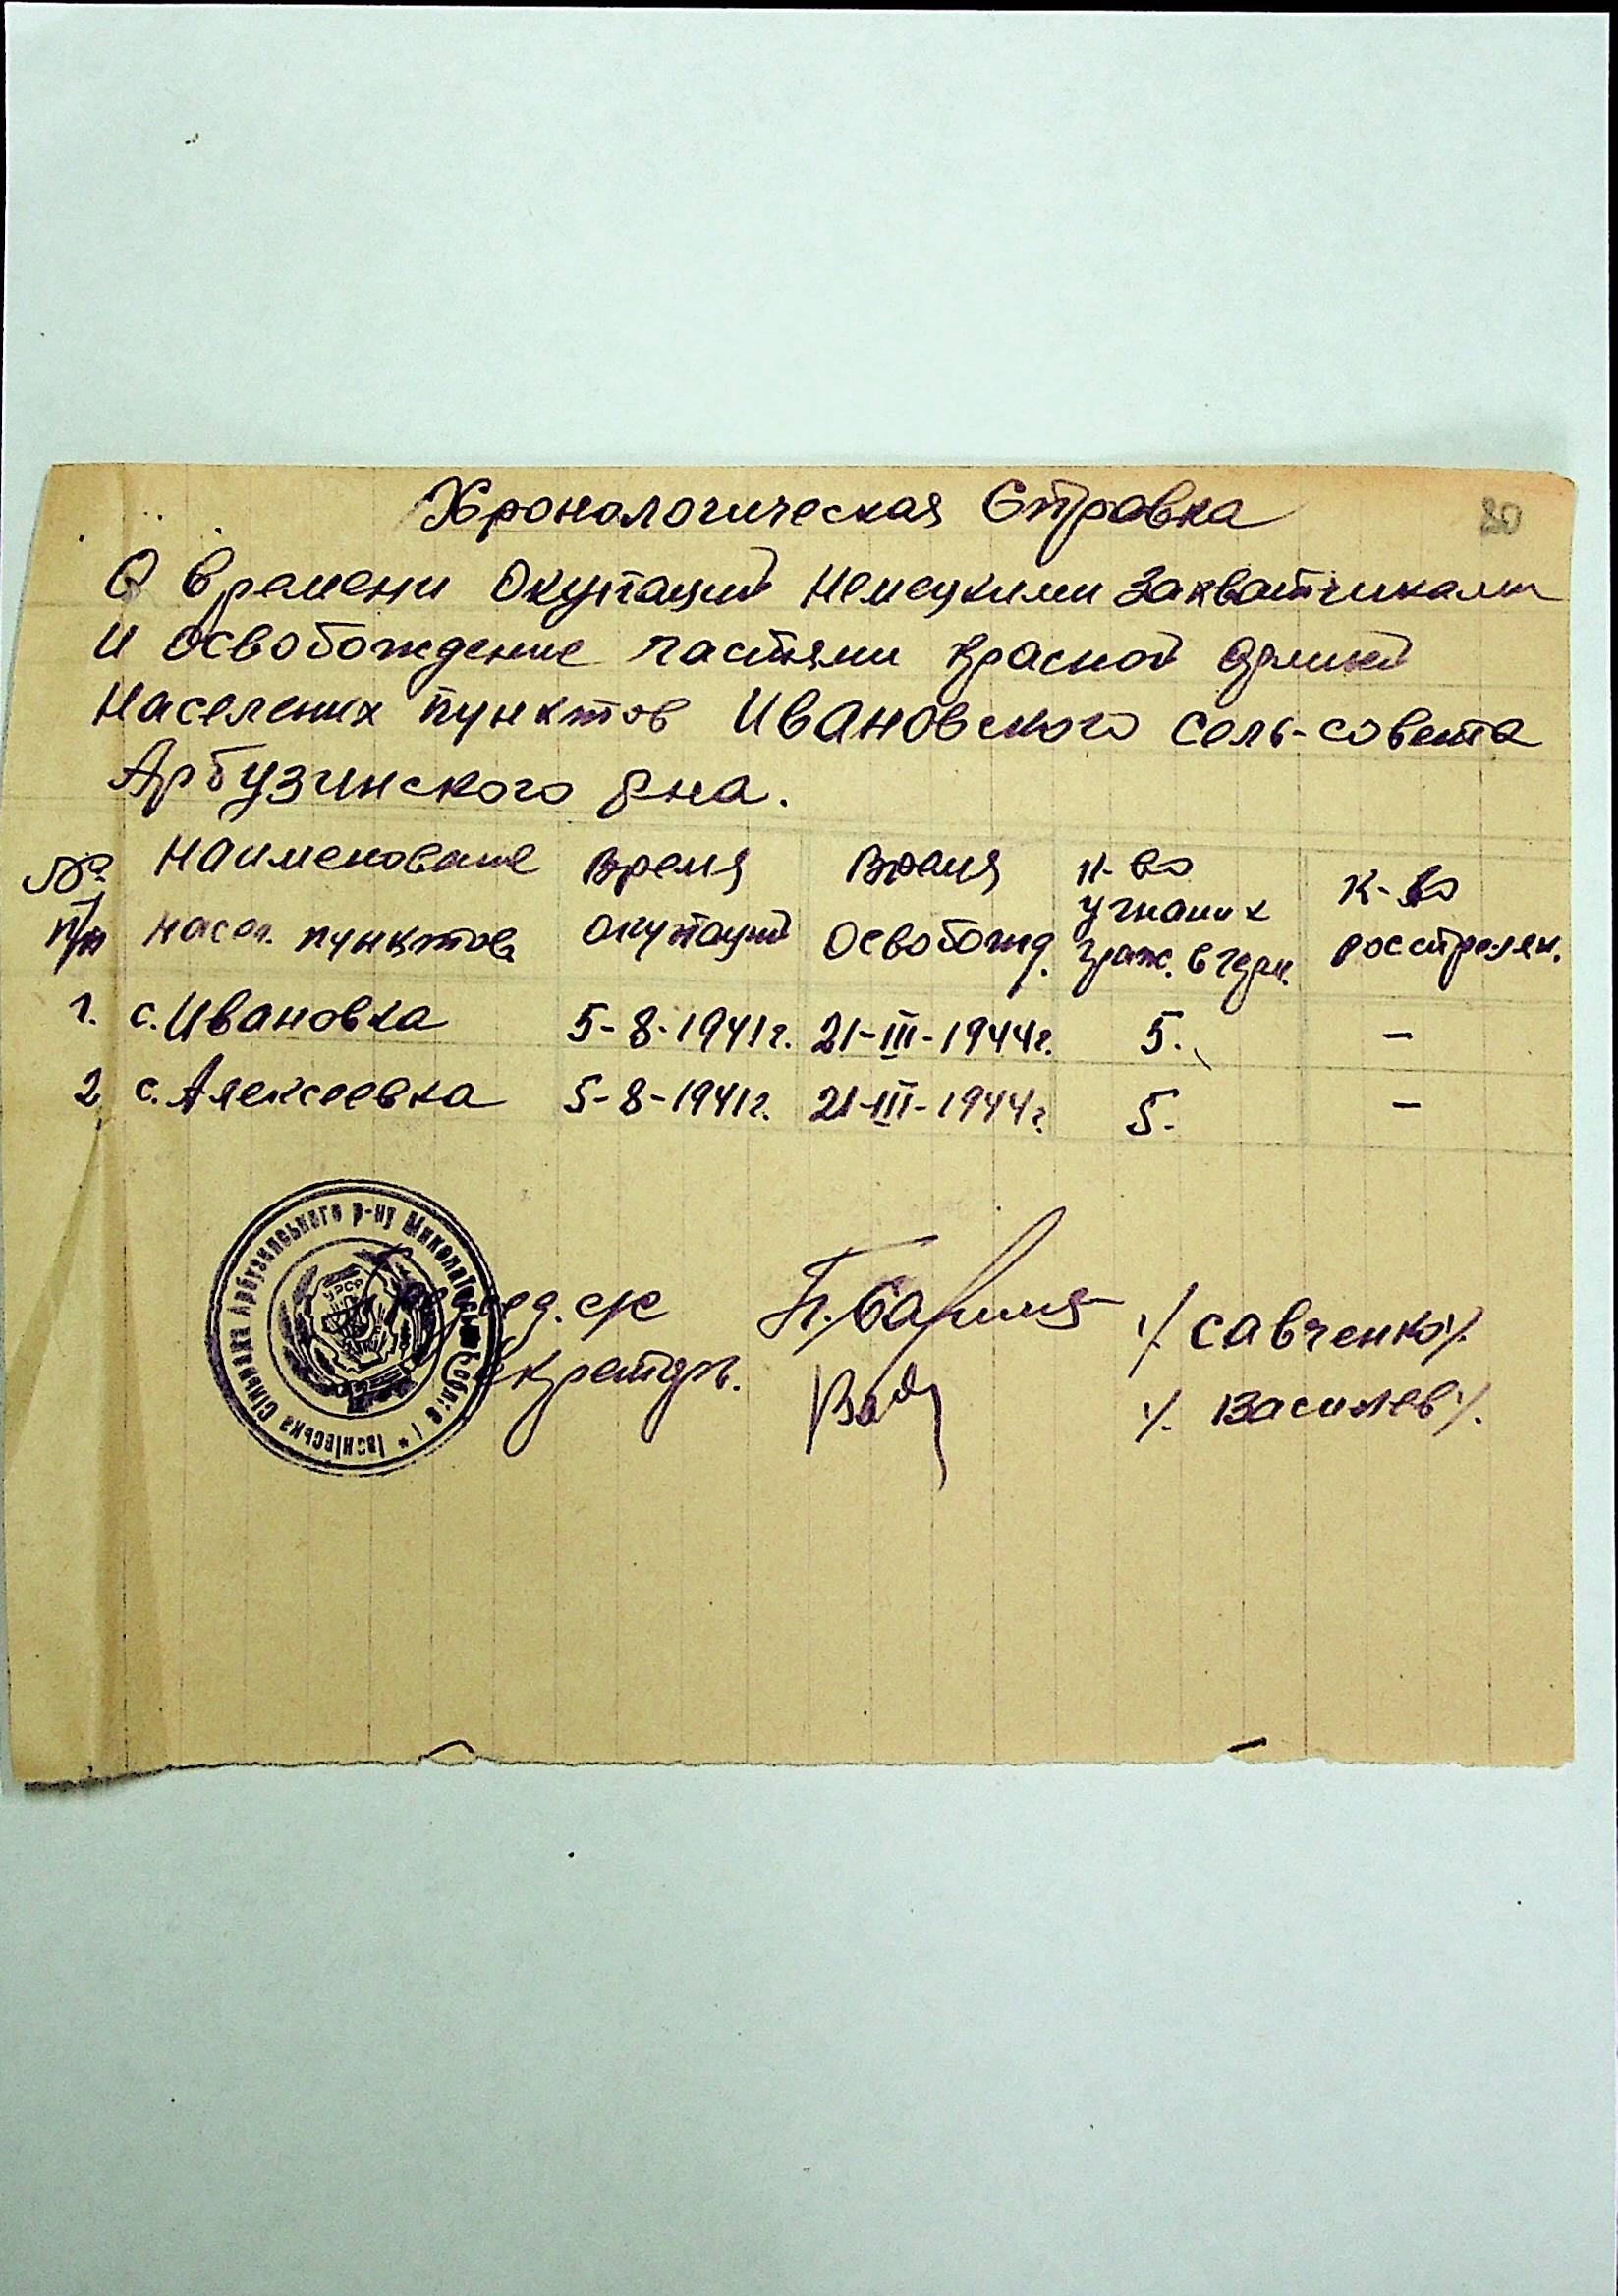 Хронологическая Справка
80
О времени Окупаций Немецкими Захватчиками
и освобождение частями красной армий
Населених пунктов Ивановского сель-совета
Арбузинского р-на.
№ п/п Наименование насел. пунктов Время окупаций Время Освобожд. К-во угнаних граж. в герм. К-во росстрелян.
1. с. Ивановка 5-8-1941г. 21-III-1944г. 5. –
2 с. Алексеевка 5-8-1941г. 21-III-1944г. 5. –
Арбузинського р-ну Миколаївської області * Іванівська Сільська
УРСР
Пред. с/с /Савченко/.
Секретарь. /. Василев/.